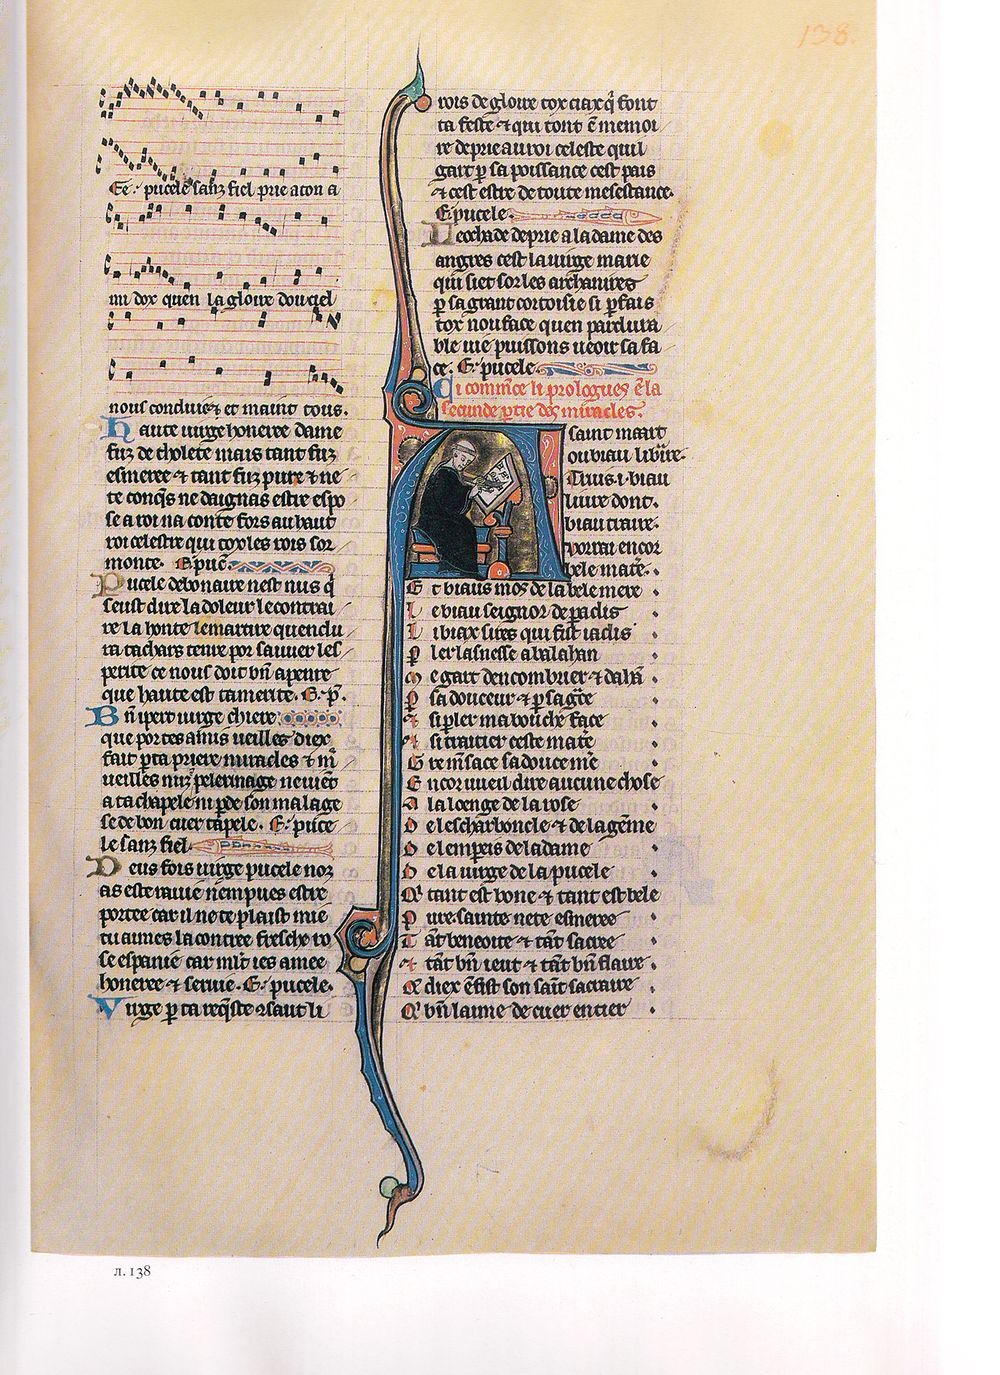 138.
E. pucele sanz fiel prie a ton a
mi dox quen la gloire dou ciel
nous conduie et maint tous.
Haute uirge honeree dame
fuz de tholete mais tant fuz
esmeree et tant fuz pure et ne
te conqs ne daignas estre espo
se a roi na conte fors au haut
roi celestre qui toz les rois sor
monte. E puc
Pucele debonaire nest nus q̃
seust dire la doleur le contrai
re la honte le martire quendu
ra tachars tenre por sauuer les
perite ce nous doit bñ aperte
que haute est ta merite. E. p̃.
Bñ ipere uirge chiere
que portes amis ueilles diex
fait p ta priere miracles et
ueilles pelerinage neuiẽt
a ta chapele ni pde son malage
se de bon cuer tapele. E. puce
le sanz fiel
Deus fois uirge pucele noz
as este rauie nempues estre
portee car il ne te plaist mie
tu aimes la contree fresche ro
se espanie car mlt ies amee
honeree et seruie. E. pucele.
Virge p ta reqste saut li
rois de gloire toz ciax q̃ font
ta feste et qui font ẽ memoi
re deprie au roi celeste quil
gart p sa poissance cest pais
et cest estre de toute mesestance.
E pucele.
Leochade deprie a la dame des
angres cest la uirge marie
qui siet sor les archanges
p sa grant cortoisie si pfais
toz nou face quen pardura
ble uie puissons ueoir sa fa
ce. E. pucele
Ci commẽce li prologues ẽ la
secunde ptie des miracles.
A saint maart
ou biau libure
Truis .i. biau
liure dont
biau traire
vorrai encor
bele mate.
Et biaus moz de la bele mere
Le biau seignor de padis
Li biax sires qui fist iadis
Pler lasnesse a balahan
Me gart dencombrier et dahã
P sa douceur et p sa grẽ
Et si pler ma bouche face
Et si traitier ceste mate
Gre men sace sa douce me
Encor uueil dire aucune chose
A la loenge de la rose
De lescharboncle et de la gẽme
De lempeis de la dame
De la uirge de la pucele
Q tant est bone et tant est bele
Pure sainte nete esmeree
Tãt beneoite et tãt sacree
Et tãt bñ ieut et tãt bñ flaire
Q diex ẽ fist son saĩt sacraire
Q bñ laime de cuer entier
л. 138